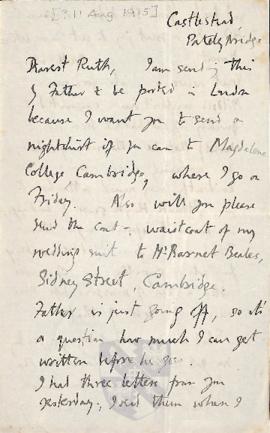 [31 Aug 1915]
Castlestead,
Pateley Bridge
Dearest Ruth, I am sending this
by Father to be posted in London
because I want you to send a
nightshirt if you can to Magdalene
College Cambridge, where I go on
Friday. Also will you please
send the coat & waistcoat of my
wedding suit to Mr Barnet Beales,
Sidney Street, Cambridge.
Father is just going off, so it's
a question how much I can get
written before he goes.
I had three letters from you
yesterday; I read them when I